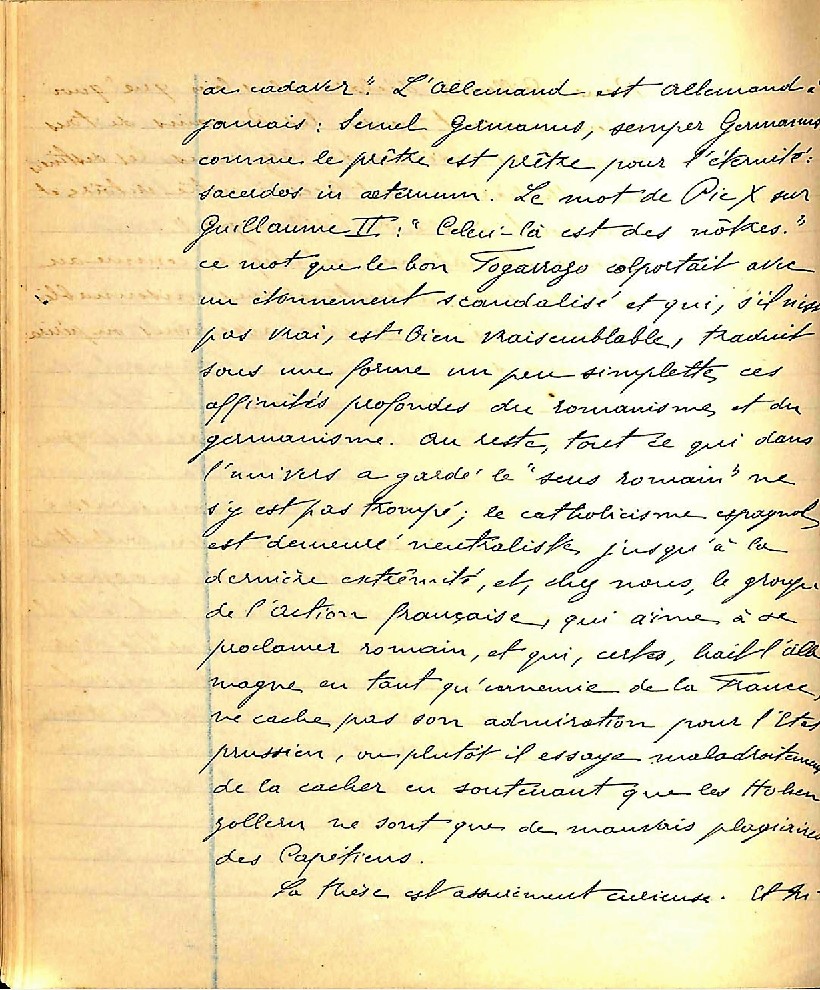 ac cadaver". L'Allemand est Allemand à
jamais : Semel Germanus, semper Germanus
comme le prêtre est prêtre pour l'éternité :
sacerdos in æternum. Le mot de Pie X sur
Guillaume II : "Celui-là est des nôtres."
ce mot que le bon Togarrago colportait avec
un étonnement scandalisé et qui, s'il n'est
pas vrai, est bien vraisemblable, traduit
sous une forme un peu simplette, ces
affinités profondes du romanisme et du
germanisme. Au reste, tout ce qui dans
l'univers a gardé le "sens romain" ne
s'y est pas trompé ; le catholicisme espagnol
est demeuré neutraliste jusqu'à la
dernière extrêmité, et, chez nous, le groupe
de l'Action française, qui aime à se
proclamer romain, et qui, certes, hait l'Alle
magne en tant qu'ennemie de la France,
ne cache pas son admiration pour l'Etat
prussien, ou plutôt il essaye maladroitement
de la cacher en soutenant que les Hohen
zollern ne sont que de mauvais plagiaires
des Capétiens.
La thèse est assurément curieuse. Et